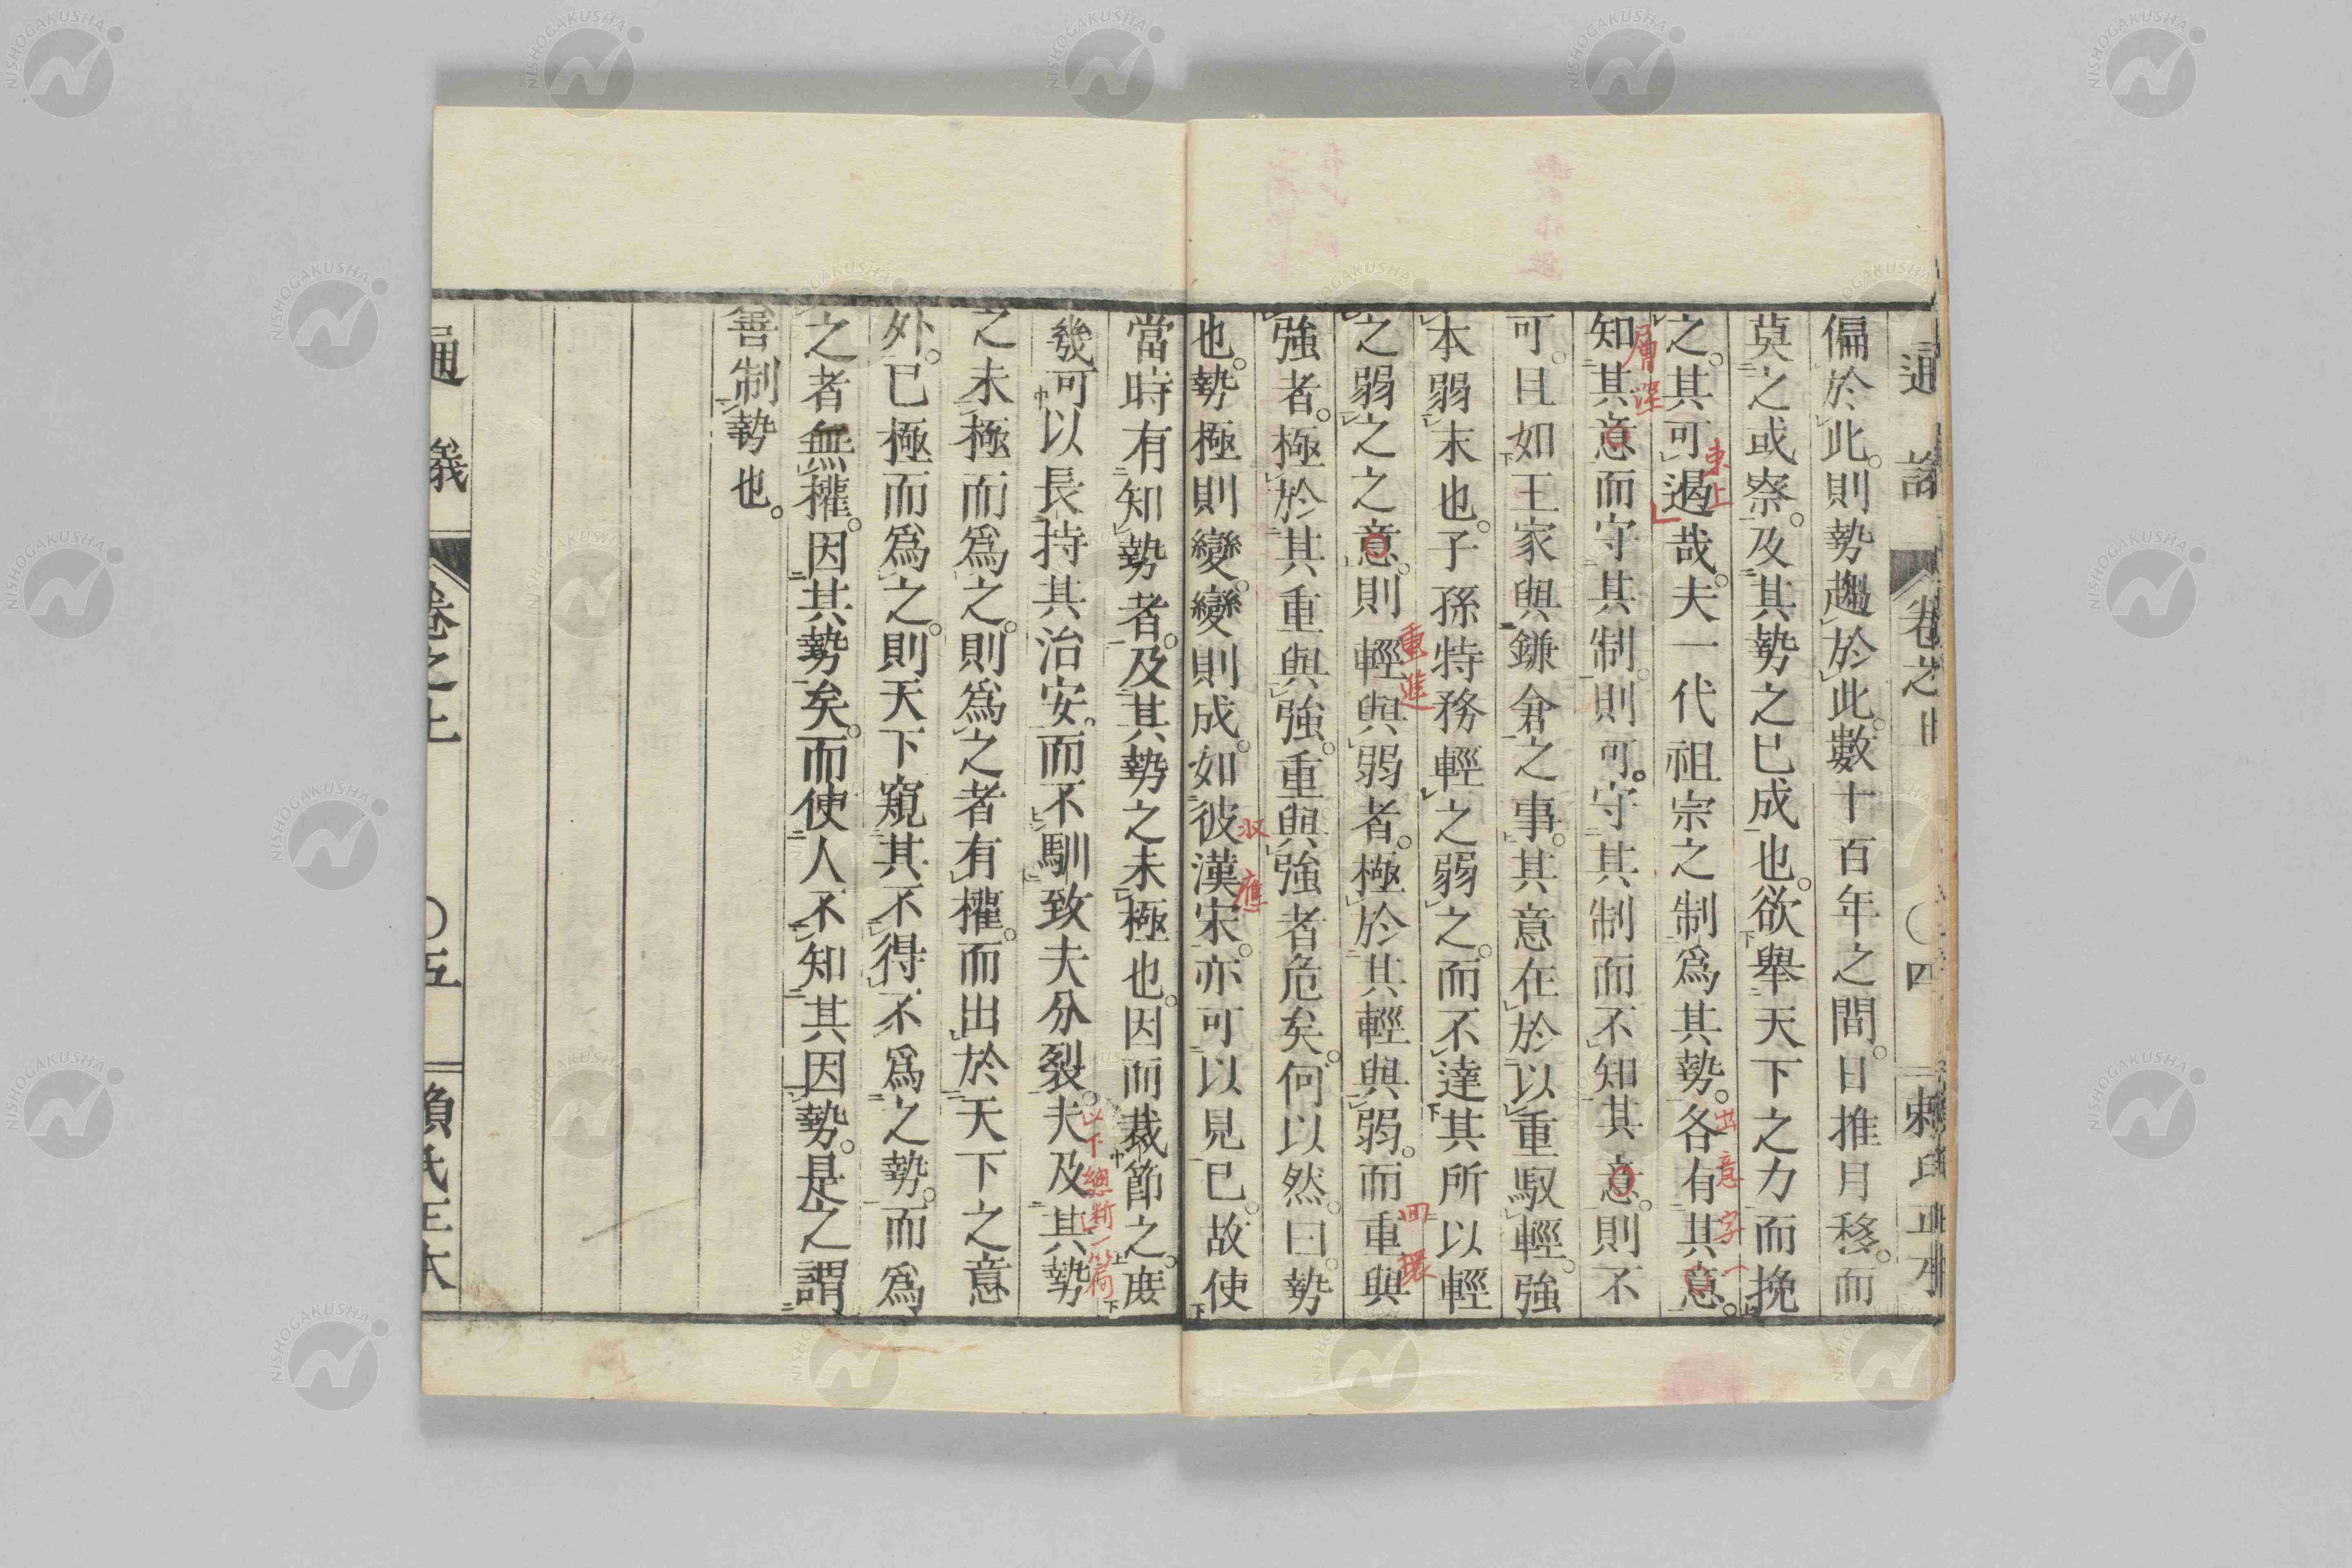 通議 卷之上 〇四 頼氏正本
偏於此。則勢趨於此。數十百年之間。日推月移。而
莫之或察。及其勢之已成也。欲舉天下之力而挽
之。其可遏哉。夫一代祖宗之制爲其勢。各有其意。
束上
出意字一
知其意而守其制。則可。守其制而不知其意。則不
層深
可。且如王家與鎌倉之事。其意在於以重馭輕。強
本弱末也。子孫特務輕之弱之。而不達其所以輕
之弱之之意。則輕與弱者。極於其輕與弱。而重與
重進
回環
強者。極於其重與強。重與強者危矣。何以然。曰。勢
也。勢極則變。變則成。如彼漢宋。亦可以見已。故使
収應
當時有知勢者。及其勢之未極也。因而裁節之。庶
幾可以長持其治安。而不馴致夫分裂。夫及其勢
以下總斷一篇
之未極而爲之。則爲之者有權。而出於天下之意
外。已極而爲之。則天下窺其不得不爲之勢。而爲
之者無權。因其勢矣。而使人不知其因勢。是之謂
善制勢也。
通議 卷之上 〇五 頼氏正本
NISHOGAKUSHA